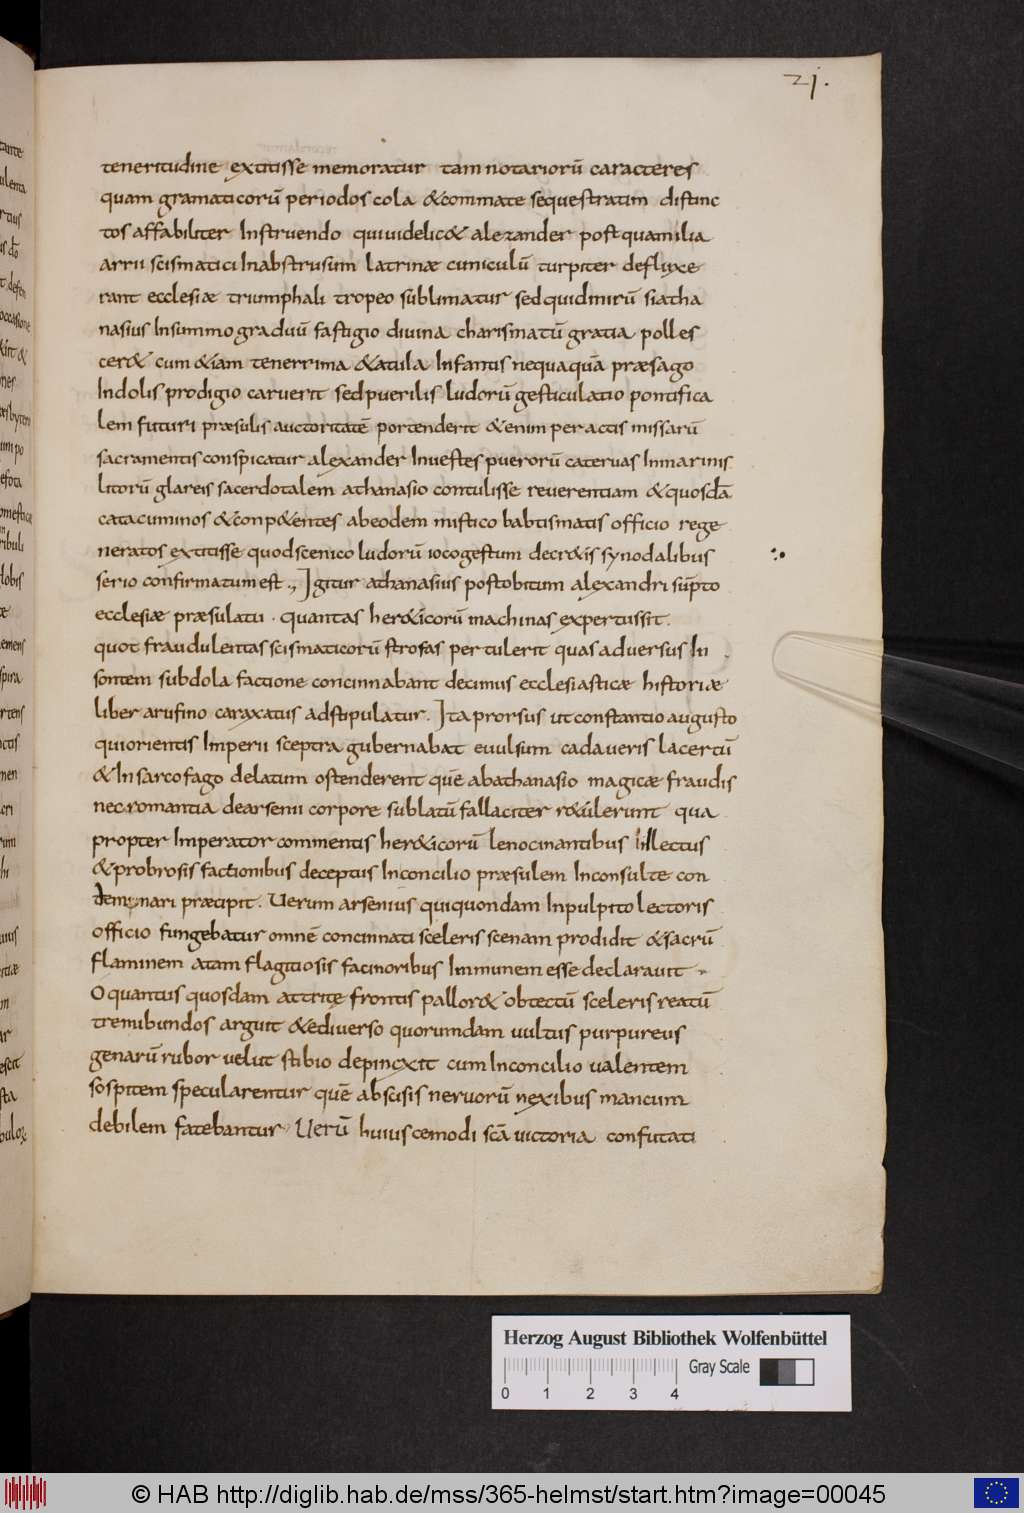 21.
teneritudine extitisse memoratur tam notariorū caracteres
quam gramaticorū periodos cola &commate sequestratim distinc
tos affabiliter Instruendo quiuidelic& alexander postquamilia
arrii scismatici Inabstrusum latrinæ cuniculū turpiter defluxe
rant ecclesiæ triumphali tropeo sublimatur sedquidmirū siatha
nasius Insummo graduū fastigio diuina charismatū gratia polles
cer& cum &iam tenerrima &atula Infantis nequaquā præsago
Indolis prodigio caruerit sedpuerilis ludorū gesticulatio pontifica
lem futuri præsulis auctoritatē portenderit &enim peractis missarū
sacramentis conspicatur alexander Inuestes puerorū cateruas Inmarinis
litorū glareis sacerdotalem athanasio contulisse reuerentiam &quosdā
catacuminos &conp&entes abeodem mistico babtismatis officio rege
neratos extitisse quodscenico ludorū iocogestum decr&is synodalibus
serio confirmatum est., Igitur athanasius postobitum alexandri sūpto
ecclesiæ præsulatu. quantas her&icorū machinas expertussit.
quot fraudulentas scismaticorū strofas pertulerit quas aduersus In
sontem subdola factione concinnabant decimus ecclesiasticæ historiæ
liber arufino caraxatus adstipulatur. Ita prorsus ut constantio augusto
quiorientis Imperii sceptra gubernabat euulsum cadaueris lacertū
&Insarcofago delatum ostenderent quē abathanasio magicæ fraudis
necromantia dearsenii corpore sublatū fallaciter r&ulerunt qua
propter Imperator commentis her&icorū lenocinantibus Illectus
&probrosis factionibus deceptus Inconcilio præsulem Inconsulte con
demnari præcipit. Uerum arsenius quiquondam Inpulpito lectoris
officio fungebatur omnē concinnati sceleris scenam prodidit &sacrū
flaminem atam flagitiosis facinoribus Immunem esse declarauit
O quantus quosdam attritę frontis pallor& obtectū sceleris reatū
tremibundos arguit &ediuerso quorumdam uultus purpureus
genarū rubor uelut stibio depincxit cum Inconcilio ualentem
sospitem specularentur quē abscisis neruorū nexibus mancum
debilem fatebantur Uerū huiuscemodi scā uictoria confutati
Herzog August Bibliothek Wolfenbüttel
Gray Scale
0 1 2 3 4
© HAB http://diglib.hab.de/mss/365-helmst/start.htm?image=00045